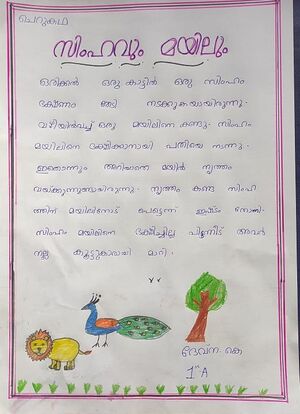 ചെറുകഥ
സിംഹവും മയിലും
ഒരിക്കൽ ഒരു കാട്ടിൽ ഒരു സിംഹം
ഭക്ഷണം തേടി നടക്കുകയായിരുന്നു.
വഴിയിൽവച്ച് ഒരു മയിലിനെ കണ്ടു. സിംഹം
മയിലിനെ ഭക്ഷിക്കാനായി പതിയെ വന്നു.
ഇതൊന്നും അറിയാതെ മയിൽ നൃത്തം
വയ്ക്കുന്നുണ്ടായിരുന്നു. നൃത്തം കണ്ട സിംഹ
ത്തിന് മയിലിനോട് പെട്ടെന്ന് ഇഷ്ടം തോന്നി.
സിംഹം മയിലിനെ ഭക്ഷിച്ചില്ല പിന്നീട് അവർ
നല്ല കൂട്ടുകാരായി മാറി.
ദേവന. കെ
1st A